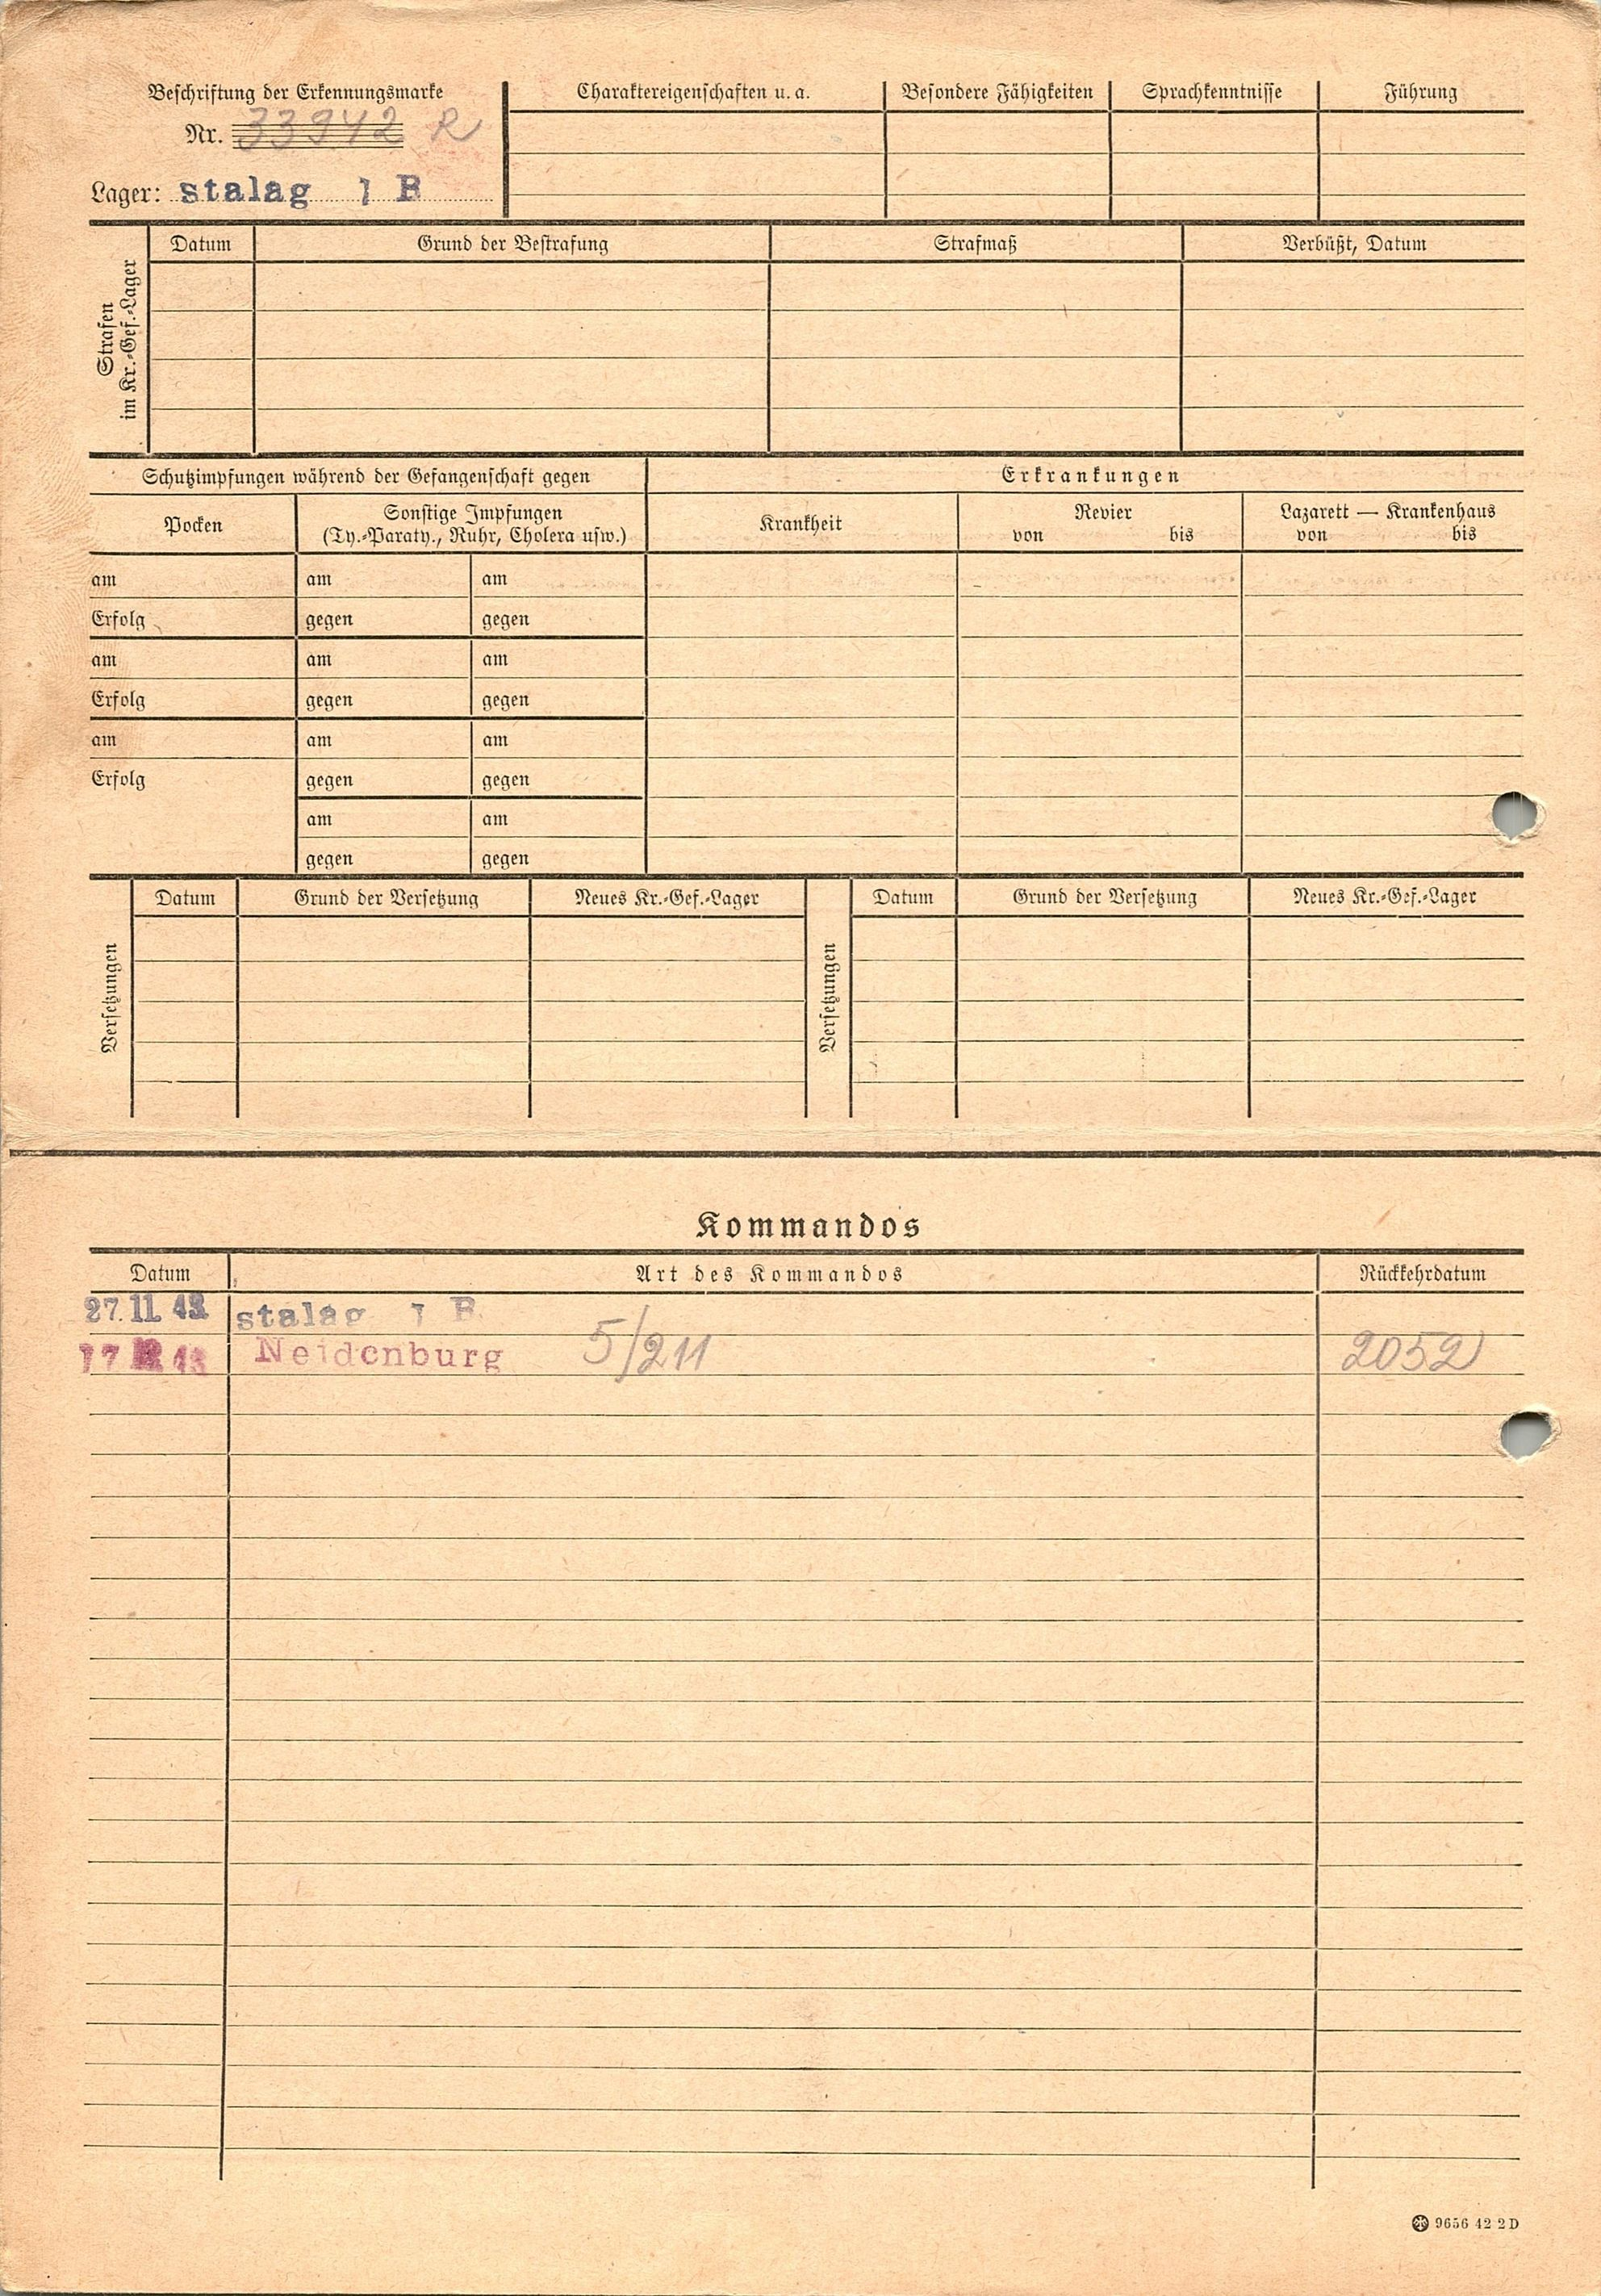 Beschriftung der Erkennungsmarke
Nr. 33942 R
Lager: stalag 1 B
Charaktereigenschaften u. a.
Besondere Fähigkeiten
Sprachkenntnisse
Führung
Strafen
im Kr.-Gef.-Lager
Datum
Grund der Bestrafung
Strafmaß
Verbüßt, Datum
Schutzimpfungen während der Gefangenschaft gegen
Erkrankungen
Pocken
Sonstige Impfungen
(Ty.-Paraty., Ruhr, Cholera usw.)
Krankheit
Revier
von bis
Lazarett — Krankenhaus
von bis
am am am
Erfolg gegen gegen
am am am
Erfolg gegen gegen
am am am
Erfolg gegen gegen
am am
gegen gegen
Versetzungen
Datum Grund der Versetzung Neues Kr.-Gef.-Lager
Versetzungen
Datum Grund der Versetzung Neues Kr.-Gef.-Lager
Kommandos
Datum Art des Kommandos Rückkehrdatum
27. 11. 43 stalag 1 B
17 43 Neidenburg 5/211 2052
9656 42 2 D